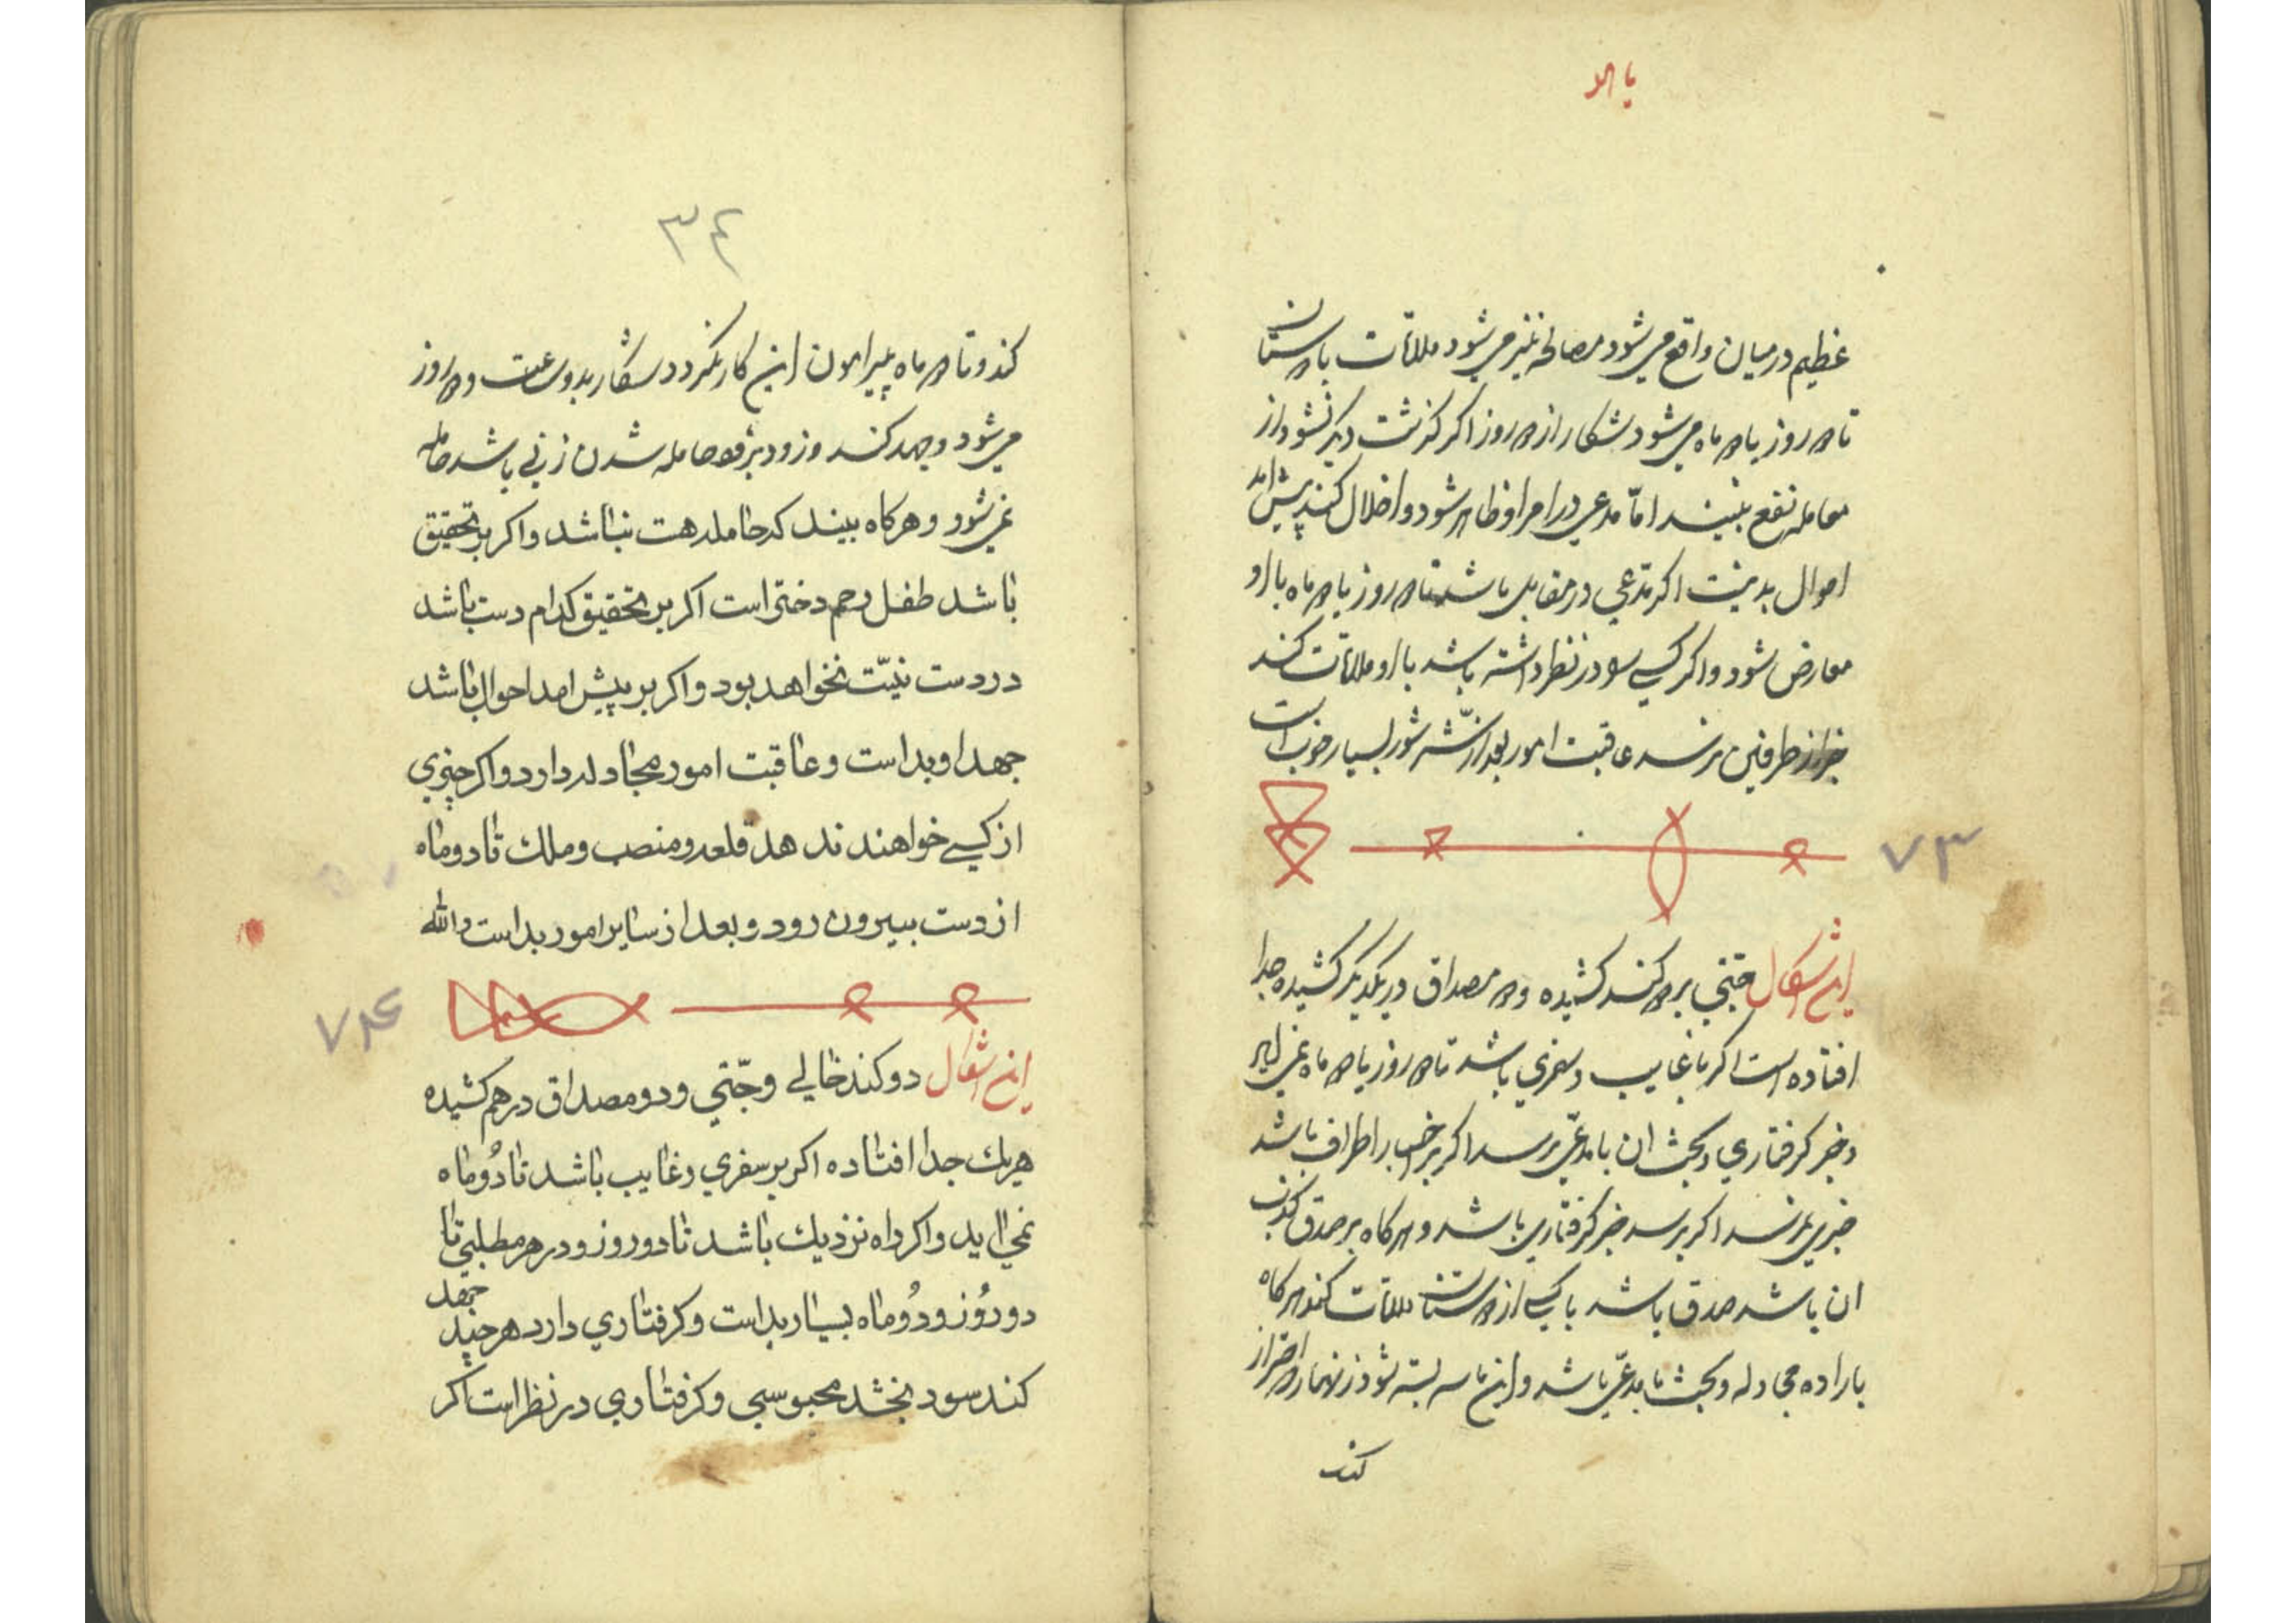 یا هو
عظیم درمیان واقع می شود مصالحه نیز می شود ملاقات با دوستان
تا دو روز یا دو ماه می شود شکار از دو روز اکر کذشت دیکر نشود از
معامله نفع نبیند امّا مدعی در امر او ظاهر شود و اخلال کند پیش امد
احوال بد نیست اکر مدّعی در مقابل باشد تا دو روز یا دو ماه با او
معارض شود و اکر کسی سودر نظر داشته باشد با او ملاقات کند
خبر از طرفین برسد عاقبت امور بعد از شور بسیار خوب است
۷۳
این اشکال جتنی بر دو کند کشیده و دو مصداق در یکدیکر کشیده جدا
افتاده است اکر با غایب و سفری باشد تا دو روز یا دو ماه نمی اید
و خبر کرفتاری و بحث ان با مدعّی برسد اکر بر اخبار اطراف باشد
خبری نرسد اکر برسد خبر کرفتاری باشد و هر کاه بر صدق کذب
ان باشد صدق باشد با یکی از دوستان ملاقات کند هر کاه
باراده مجادله و بحث با مدعّی باشد و این ماسه بسته شود زنهار احتراز
کند
۳۴
کند و تا دو ماه پیرامون این کار نکردد شکار بد و عبث دو روز
می شود و جهد کند و زود حامله شدن زنی باشد حامله
نمی شود و هرکاه بیند که حامله هست نباشد و اکر بر تحقیق
باشد طفل رحم دختر است اکر بر تحقیق کدام دست باشد
در دست نیّت نخواهد بود و اکر بر پیش امد احوال باشد
جهد او بد است و عاقبت امور مجادله دارد و اکر چیزی
از کسی خواهند ندهد قلعه و منصب و ملک تا دو ماه
از دست بیرون رود و بعد از سایر امور بد است والله
۷۴
این اشکال دو کند خالی و جّتنی و دو مصداق در هم کشیده
هر یک جدا افتاده اکر بر سفری و غایب باشد تا دُو ماه
نمی اید و اکر راه نزدیک باشد تا دو روز و در هر مطلبی تا
دو روُز و دُو ماه بسیار بد است و کرفتاری دارد هر چند جهد
کند سود نبخشد محبوسی و کرفتاری در نظر است اکر